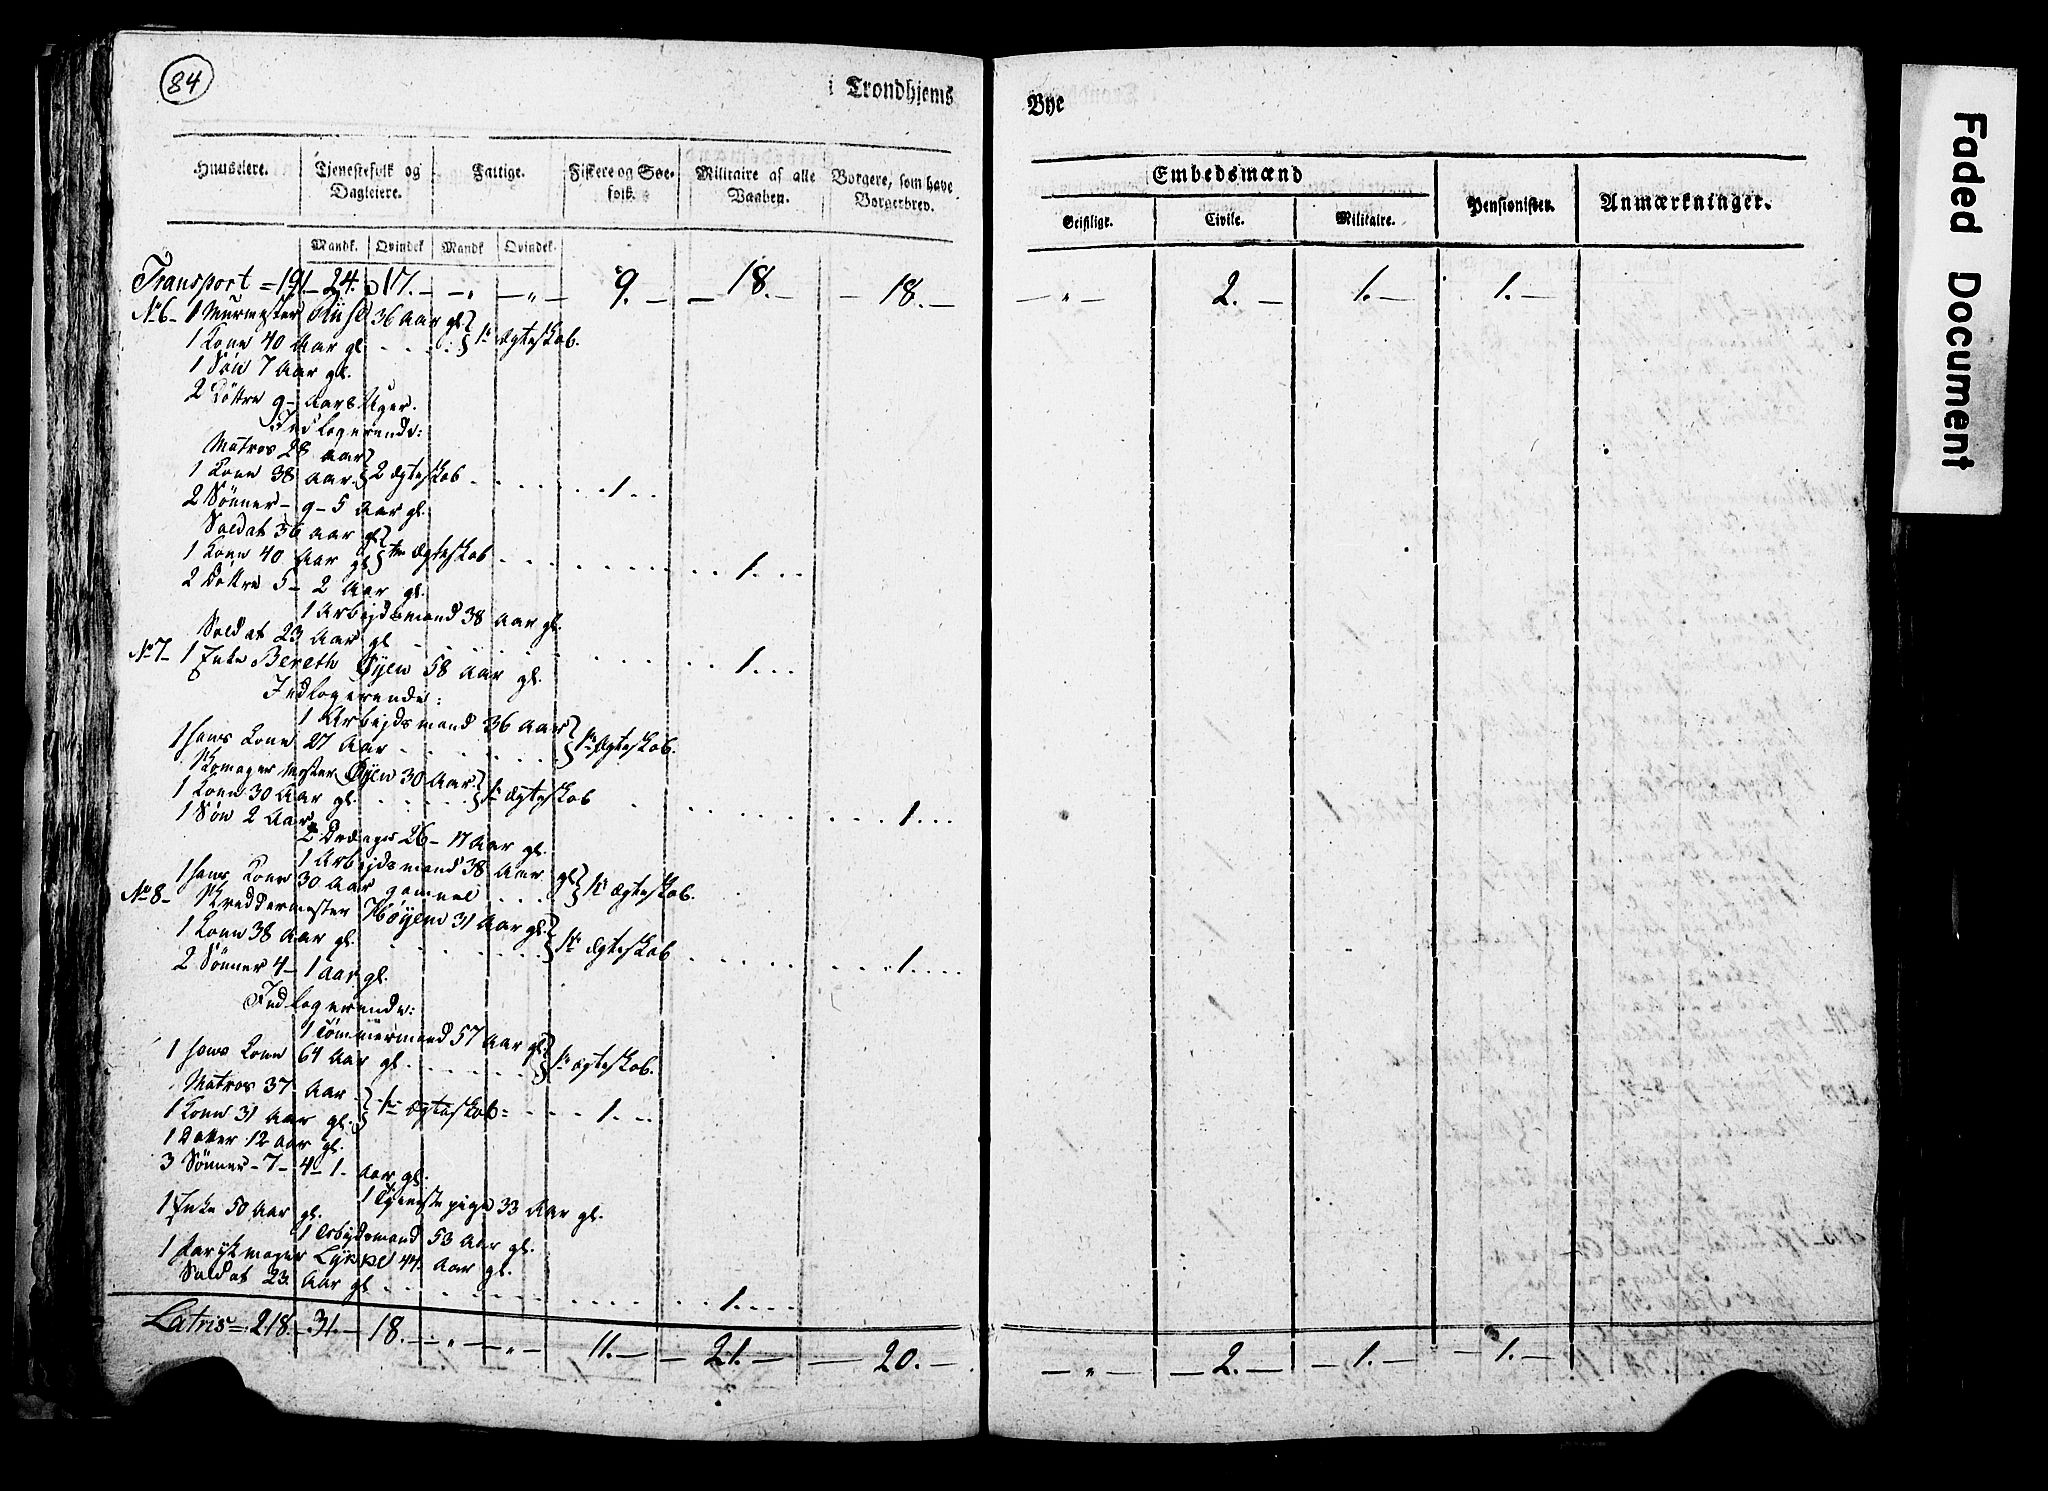 84
i Trondhjems
Bye
Huuseiere. Tjenestefolk og Dagleiere. Fattige. Fiskere og Søefolk. Militaire af alle Vaaben. Borgere, som have Borgerbrev.
Embedsmænd Pensionister. Anmærkninger.
Geistlige. Civile. Militaire.
Mandk. Qvindek. Mandk. Qvindek.
Transport = 191. 24. 17. - „ - „ - 9. - 18. - 18. - - „ - 2. - 1. - 1. -
No 6 - 1 Murmester 36 Aar gl.
1 Kone 40 Aar gl. 1te Ægteskab.
1 Søn 7 Aar gl.
2 Døttre 9 - Aar
Indlogerende:
Matros 28 Aar
1 Kone 38 Aar 2 Ægteskab 1
2 Sønner - 9 - 5 Aar gl.
Soldat 36 Aar gl
1 Kone 40 Aar gl Ægteskab 1
2 Døttre 5 - 2 Aar gl.
1 Arbejdsmand 38 Aar gl.
Soldat 23 Aar gl 1
No 7 - 1 Enke Bereth Øyen 58 Aar gl.
Indlogerende:
1 Arbejdsmand 36 Aar
1 hans Kone 27 Aar 1te Ægteskab.
Øyen 30 Aar
1 Kone 30 Aar gl. 1te Ægteskab 1
1 Søn 2 Aar
2 26 - 17 Aar gl.
1 Arbejdsmand 38 Aar gl
1 hans Kone 30 Aar gammel 1te Ægteskab.
No 8 - Skreddermester Høyem 31 Aar gl.
1 Kone 38 Aar gl. 1te Ægteskab 1
2 Sønner 4 - 1 Aar gl.
Indlogerende:
1 Tømmermand 57 Aar gl
1 hans Kone 64 Aar gl. 1te Ægteskab.
Matros 37 Aar
1 Kone 31 Aar gl. 1te Ægteskab 1
1 Datter 12 Aar gl.
3 Sønner - 7 - 4 - 1 - Aar gl.
1 Tjenestepige 33 Aar gl.
1 Enke 50 Aar gl.
1 Arbejdsmand 53 Aar gl.
1 Parykmager Lykke 44 Aar gl.
Soldat 23 Aar gl 1
Latris = 218. - 31. - 18. - „ - „ - 11. - 21. - 20. - - „ - 2. - 1. - 1. -
Faded Document